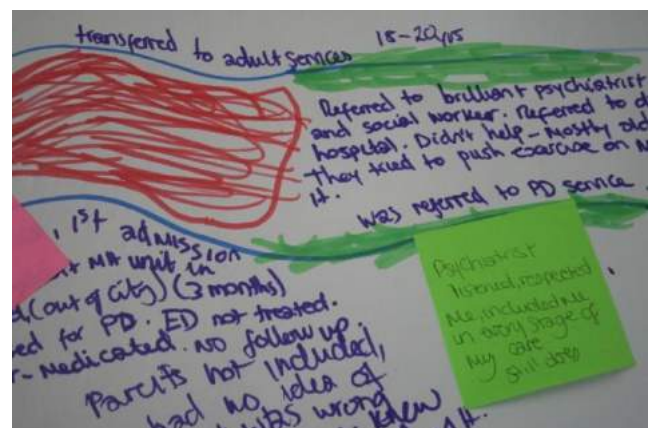 transferred to adult services
18-20yrs
Referred to brilliant psychiatrist
and social worker. Referred to d
hospital. Didn't help - Mostly old
They tried to push exercise on M
it.
was referred to PD service
1st admission
MH unit in
(out of city) (3 months)
ed for PD. ED not treated.
r-medicated. no follow up.
Parents not included,
had no idea of
was wrong
knew
Psychiatrist
listened, respected
Me, included Me
in every stage of
My care
still does